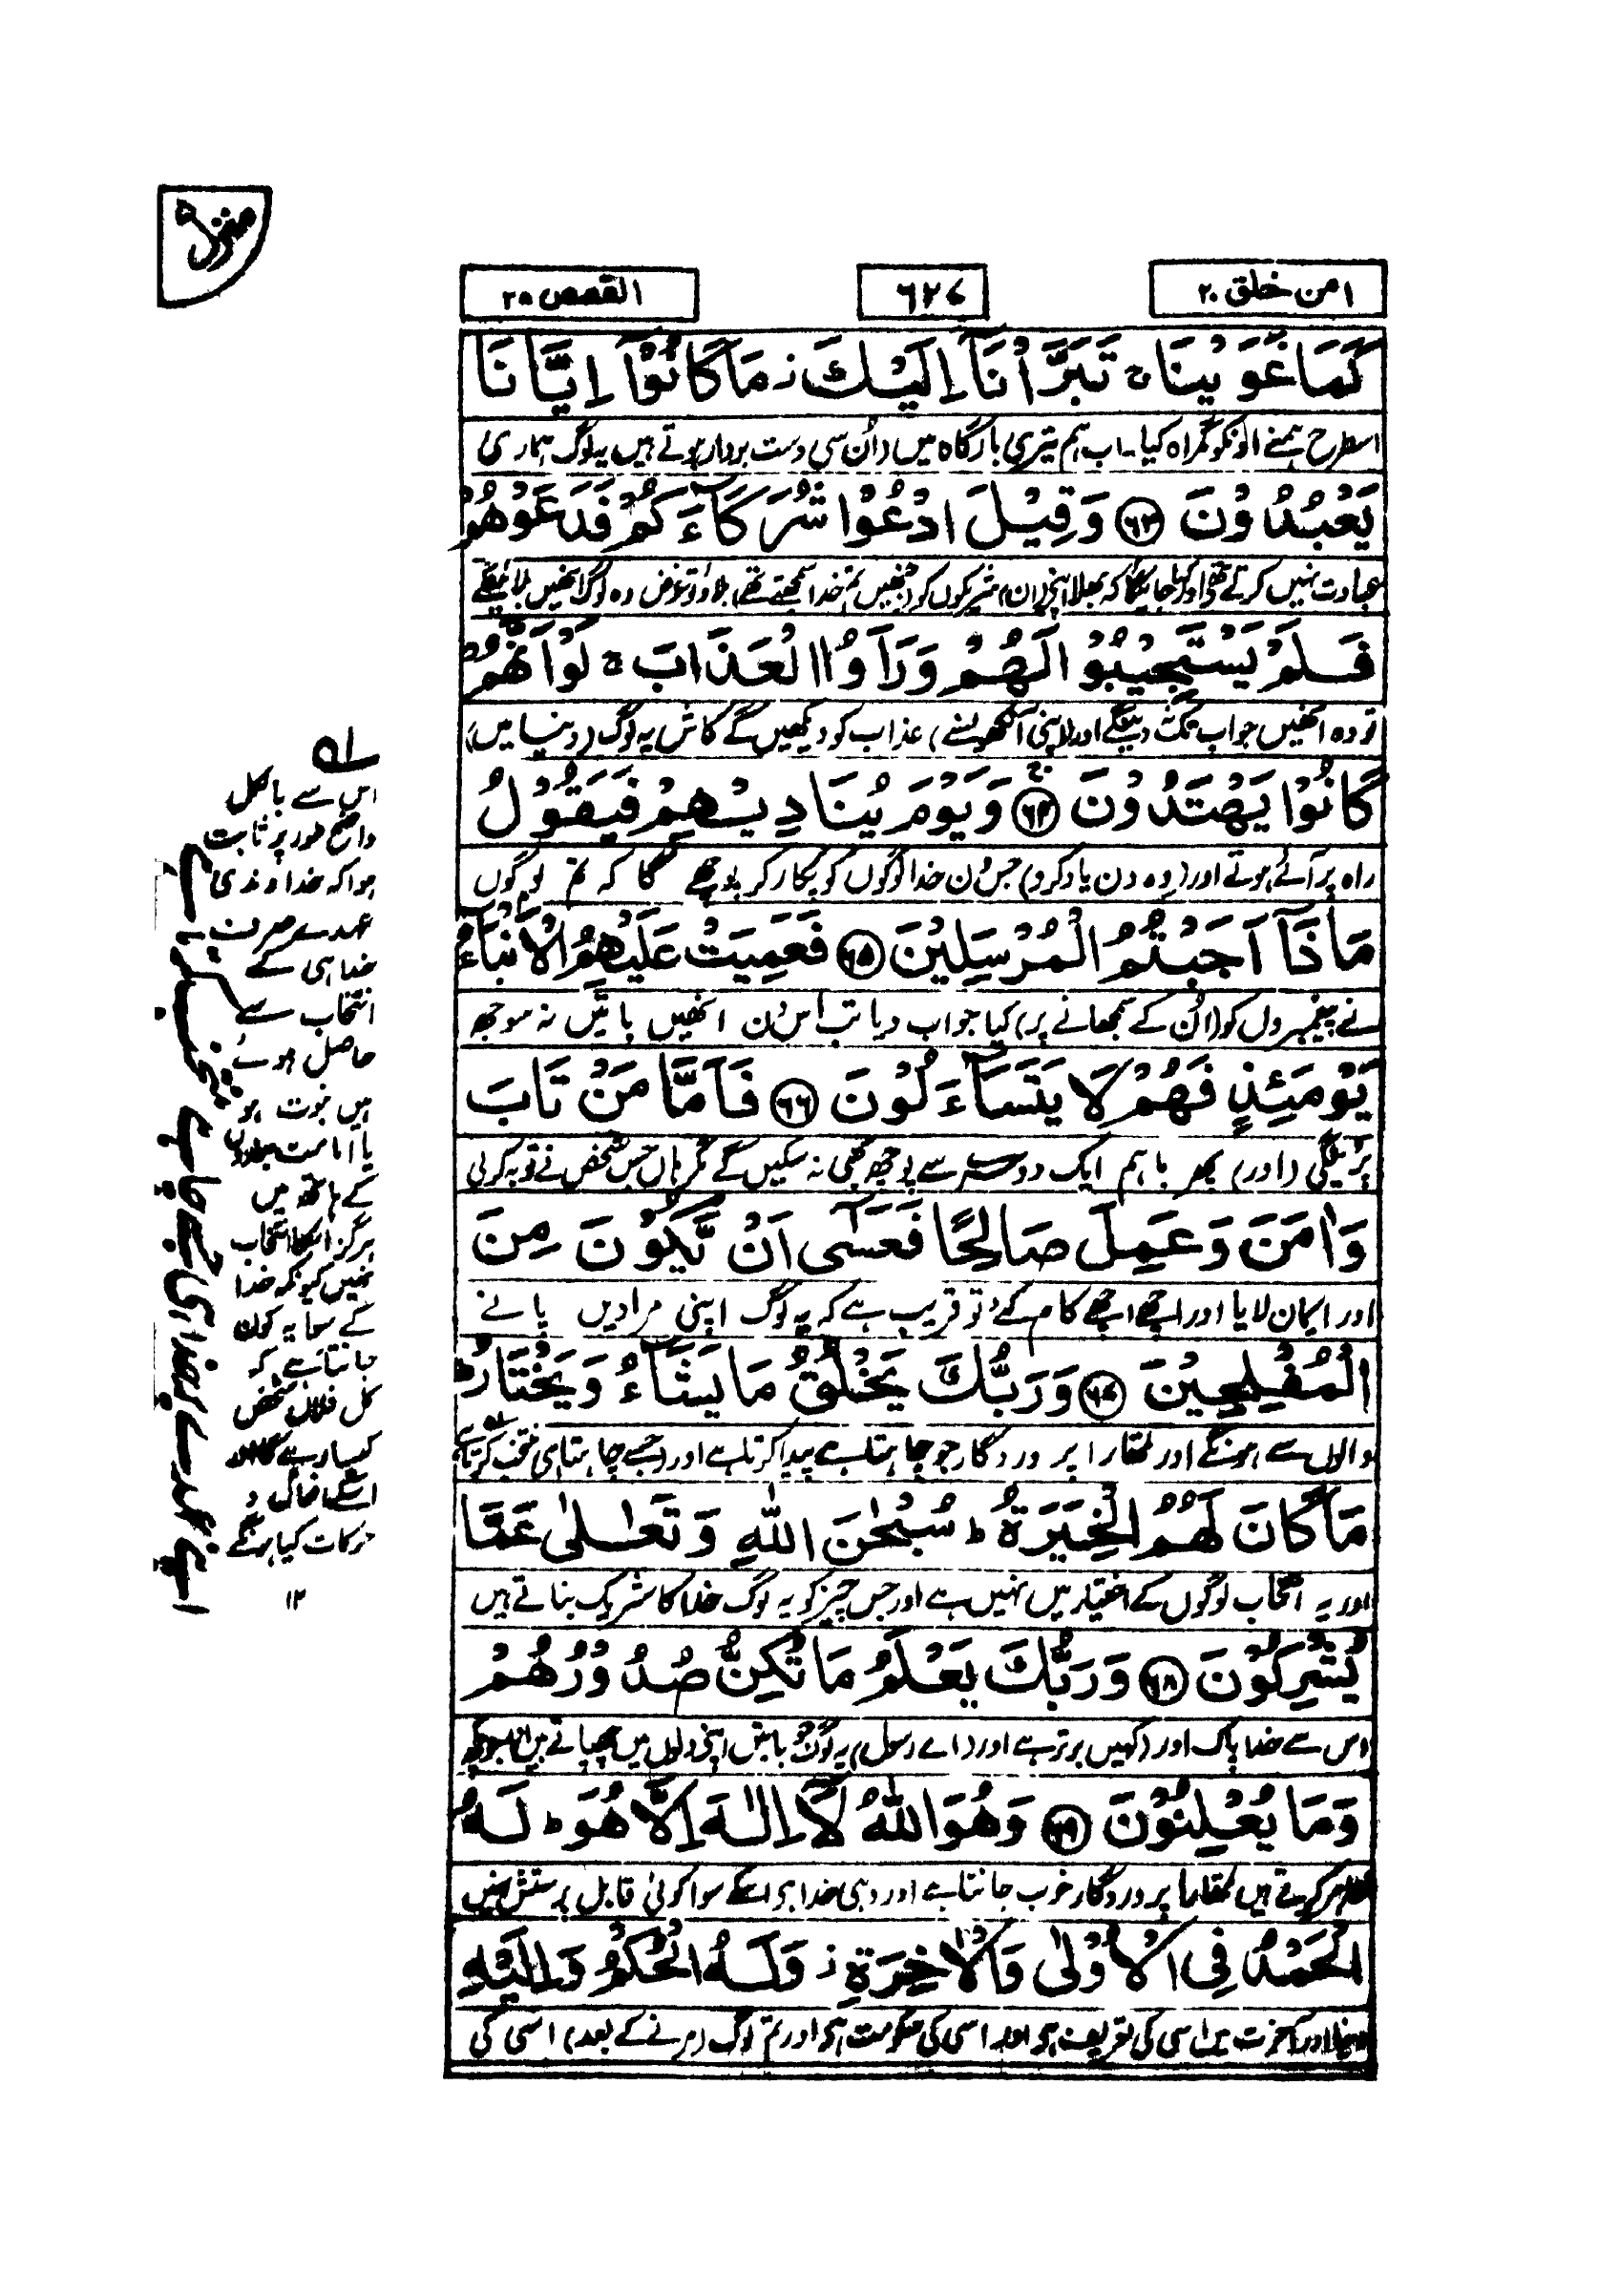 منزل ۵
امن خلق ۲۰
۶۲۷
القصص ۲۸
كَمَا غَوَيْنَا ۚ تَبَرَّاْنَآ اِلَيْكَ ز مَا كَانُوْٓا اِيَّانَا
اسطرح ہمنے اونکو گمراہ کیا۔ اب ہم تیری بارگاہ میں (اُن سی دست بردار ہوتے ہیں یہ لوگ ہماری
يَعْبُدُوْنَ ﴿۶۳﴾ وَقِيْلَ ادْعُوْا شُرَكَآءَكُمْ فَدَعَوْهُمْ
عبادت نہیں کرتے تھے اور کہا جائیگا کہ بھلا اپنی (ان) شریکوں کو (جنھیں تم خدا سمجھتے تھے) بلاؤ تو غرض وہ لوگ انھیں بلائینگے
فَلَمْ يَسْتَجِيْبُوْا لَهُمْ وَرَاَوُا الْعَذَابَ ۚ لَوْ اَنَّهُمْ
تو وہ انھیں جواب تک نہ دینگے اور (اپنی آنکھوں سے) عذاب کو دیکھیں گے کاش یہ لوگ (دنیا میں)
كَانُوْا يَهْتَدُوْنَ ﴿۶۴﴾ وَيَوْمَ يُنَادِيْهِمْ فَيَقُوْلُ
راہ پر آئے ہوتے اور (وہ دن یاد کرو) جس دن خدا لوگوں کو پکار کر پوچھے گا کہ تم لوگوں
مَاذَآ اَجَبْتُمُ الْمُرْسَلِيْنَ ﴿۶۵﴾ فَعَمِيَتْ عَلَيْهِمُ الْاَنْۢبَآءُ
نے پیغمبروں کو (اُن کے سمجھانے پر) کیا جواب دیا تب اس دن انھیں باتیں نہ سوجھ
يَوْمَئِذٍ فَهُمْ لَا يَتَسَآءَلُوْنَ ﴿۶۶﴾ فَاَمَّا مَنْ تَابَ
پڑینگی (اور) پھر باہم ایک دوسرے سے پوچھ بھی نہ سکیں گے مگر ہاں جس شخص نے توبہ کرلی
وَاٰمَنَ وَعَمِلَ صَالِحًا فَعَسٰٓى اَنْ يَّكُوْنَ مِنَ
اور ایمان لایا اور اچھے اچھے کام کئے تو قریب ہے کہ یہ لوگ اپنی مرادیں پانے
الْمُفْلِحِيْنَ ﴿۶۷﴾ وَرَبُّكَ يَخْلُقُ مَا يَشَآءُ وَيَخْتَارُ ؕ
والوں سے ہونگے اور تمھارا پروردگار جو چاہتا ہے پیدا کرتا ہے اور (جسے چاہتا ہی منتخب کرتا ہے
مَا كَانَ لَهُمُ الْخِيَرَةُ ؕ سُبْحٰنَ اللّٰهِ وَتَعَالٰى عَمَّا
اور یہ انتخاب لوگوں کے اختیار میں نہیں ہے اور جس چیز کو یہ لوگ خدا کا شریک بناتے ہیں
يُشْرِكُوْنَ ﴿۶۸﴾ وَرَبُّكَ يَعْلَمُ مَا تُكِنُّ صُدُوْرُهُمْ
اس سے خدا پاک اور (کہیں برتر ہے اور (اے رسول) یہ لوگ جو باتیں اپنی دلوں میں چھپاتے ہیں
وَمَا يُعْلِنُوْنَ ﴿۶۹﴾ وَهُوَ اللّٰهُ لَآ اِلٰهَ اِلَّا هُوَ ؕ لَهُ
ظاہر کرتے ہیں تمھارا پروردگار خوب جانتا ہے اور وہی خدا ہی اسکے سوا کوئی قابل پرستش نہیں
الْحَمْدُ فِى الْاُوْلٰى وَالْاٰخِرَةِ ز وَلَهُ الْحُكْمُ وَاِلَيْهِ
دنیا اور آخرت میں اسی کی تعریف ہی اور اسی کی حکومت ہی اور تم لوگ (مرنے کے بعد) اسی کی
لہ
اس سے بالکل
واضح طور پر ثابت
ہوا کہ خداوندی
عہدے صرف
خدا ہی کے
انتخاب سے
حاصل ہوتے
ہیں نبوت ہو
یا امامت
کے ہاتھ میں
ہرگز اسکا انتخاب
نہیں کیونکہ خدا
کے سوا یہ کون
جانتا ہے کہ
کل فلاں شخص
کیسا رہے گا اور
اسکے افعال و
حرکات کیا ہونگے
۱۲
اپنے عہدے کیلئے خدا ہی جسے چاہے منتخب کرتا ہے